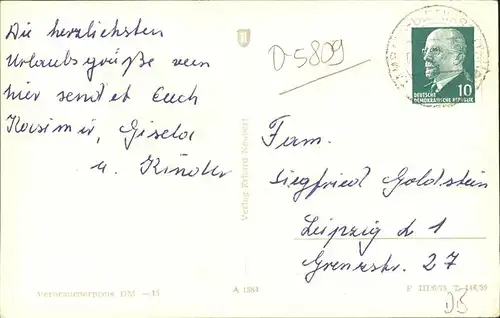 Die herzlichsten
Urlaubsgrüße von
hier sendet Euch
Kasimir, Gisela
u. Kinder
D-5809
10
DEUTSCHE
DEMOKRATISCHE REPUBLIK
Fam.
Siegfried Goldstein
Leipzig L 1
Grenzstr. 27
Verlag Erhard Neubert
Verbraucherpreis DM —15
A 1384
DB